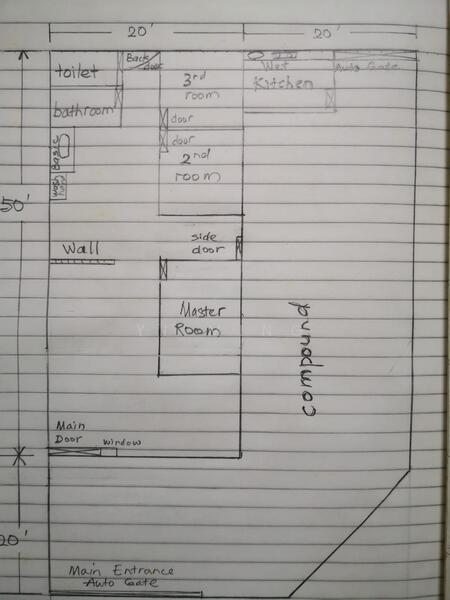 20'
20'
toilet
Back
door
3rd
room
Wet
Kitchen
Auto Gate
bathroom
door
door
Basic
2nd
room
50'
side
door
Wall
Master
Room
compound
Main
Door
window
20'
Main Entrance
Auto Gate